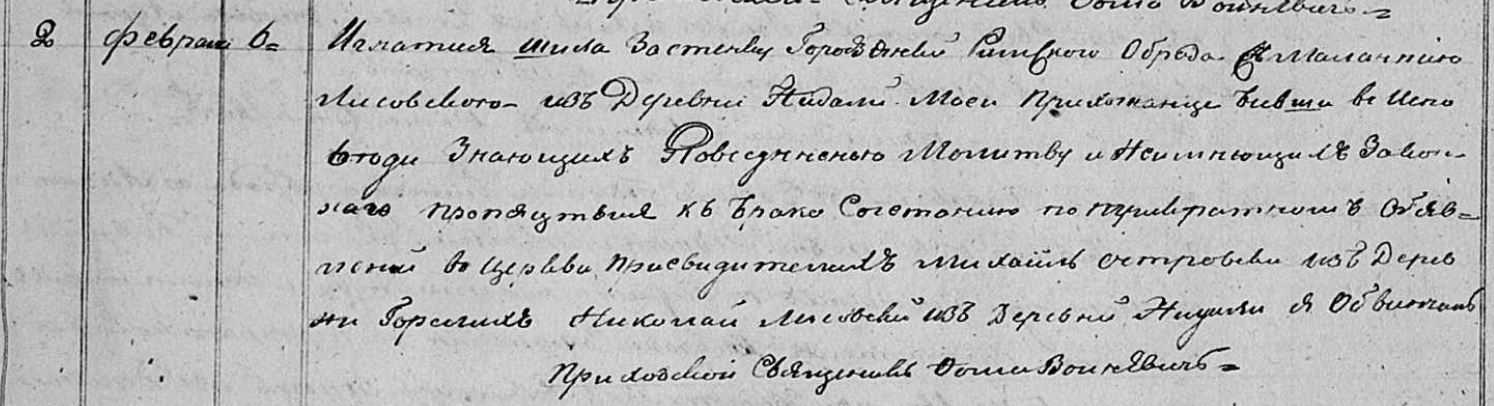 Священникъ Фома Войневичъ =
2 февраля 6 = Игнатия Шила Застенку Римского Обряда с Маланнию
Лисовского изъ Деревни Нидали Моеи Прихожанце бывши во Испо
веди Знающихъ Повседневную Молитву и Неимеющихъ Закон-
наго препятствия къ брако Сочетанию по троекратномъ Объяв=
лении во Церкви присвидителяхъ Михаилъ Островски изъ Дерев
ни Горелихъ Николай Лисовский изъ Деревни Нидали я Обвинчалъ
Приходской Священникъ Фома Войневичъ =